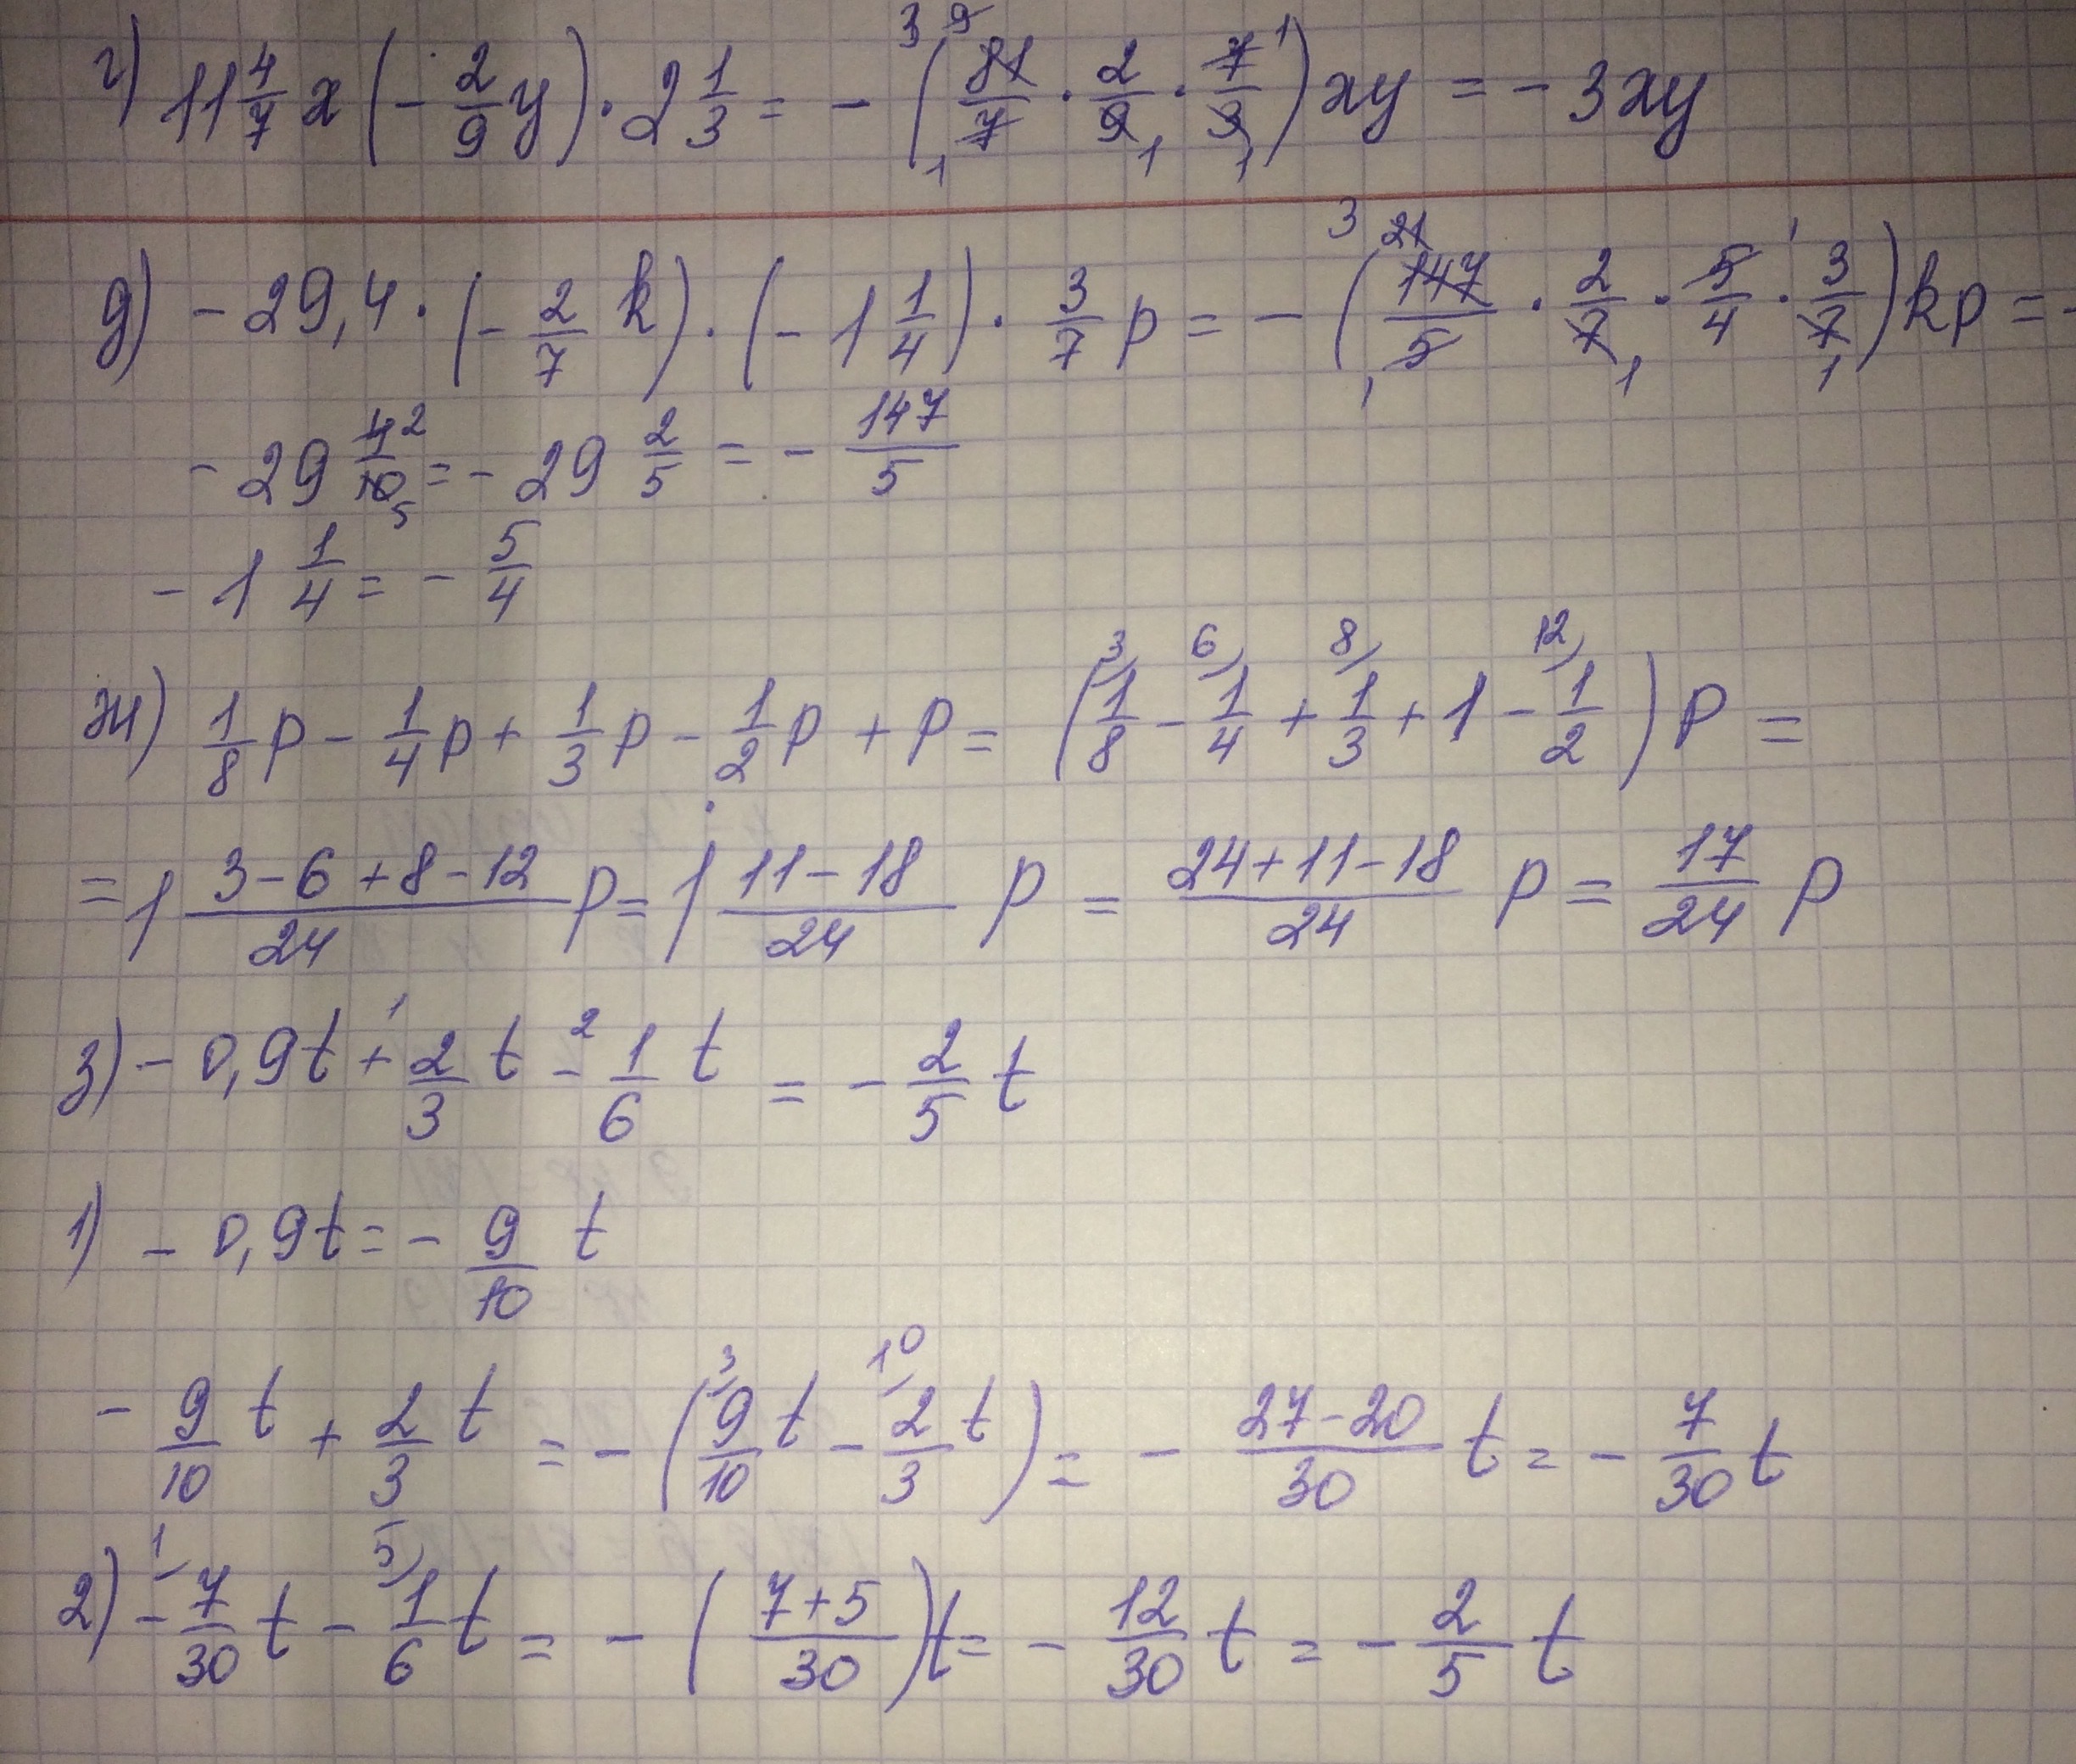 г) 11 4/7 x (- 2/9 y) · 2 1/3 = - (81/7 · 2/9 · 7/3) xy = - 3xy
д) - 29,4 · (- 2/7 k) · (- 1 1/4) · 3/7 p = - (147/5 · 2/7 · 5/4 · 3/7) kp = -
- 29 4/10 = - 29 2/5 = - 147/5
- 1 1/4 = - 5/4
ж) 1/8 p - 1/4 p + 1/3 p - 1/2 p + p = (1/8 - 1/4 + 1/3 + 1 - 1/2) p =
= 1 (3 - 6 + 8 - 12)/24 p = 1 (11 - 18)/24 p = (24 + 11 - 18)/24 p = 17/24 p
з) - 0,9t + 2/3 t - 1/6 t = - 2/5 t
1) - 0,9t = - 9/10 t
- 9/10 t + 2/3 t = - (9/10 t - 2/3 t) = - (27 - 20)/30 t = - 7/30 t
2) - 7/30 t - 1/6 t = - ((7 + 5)/30) t = - 12/30 t = - 2/5 t